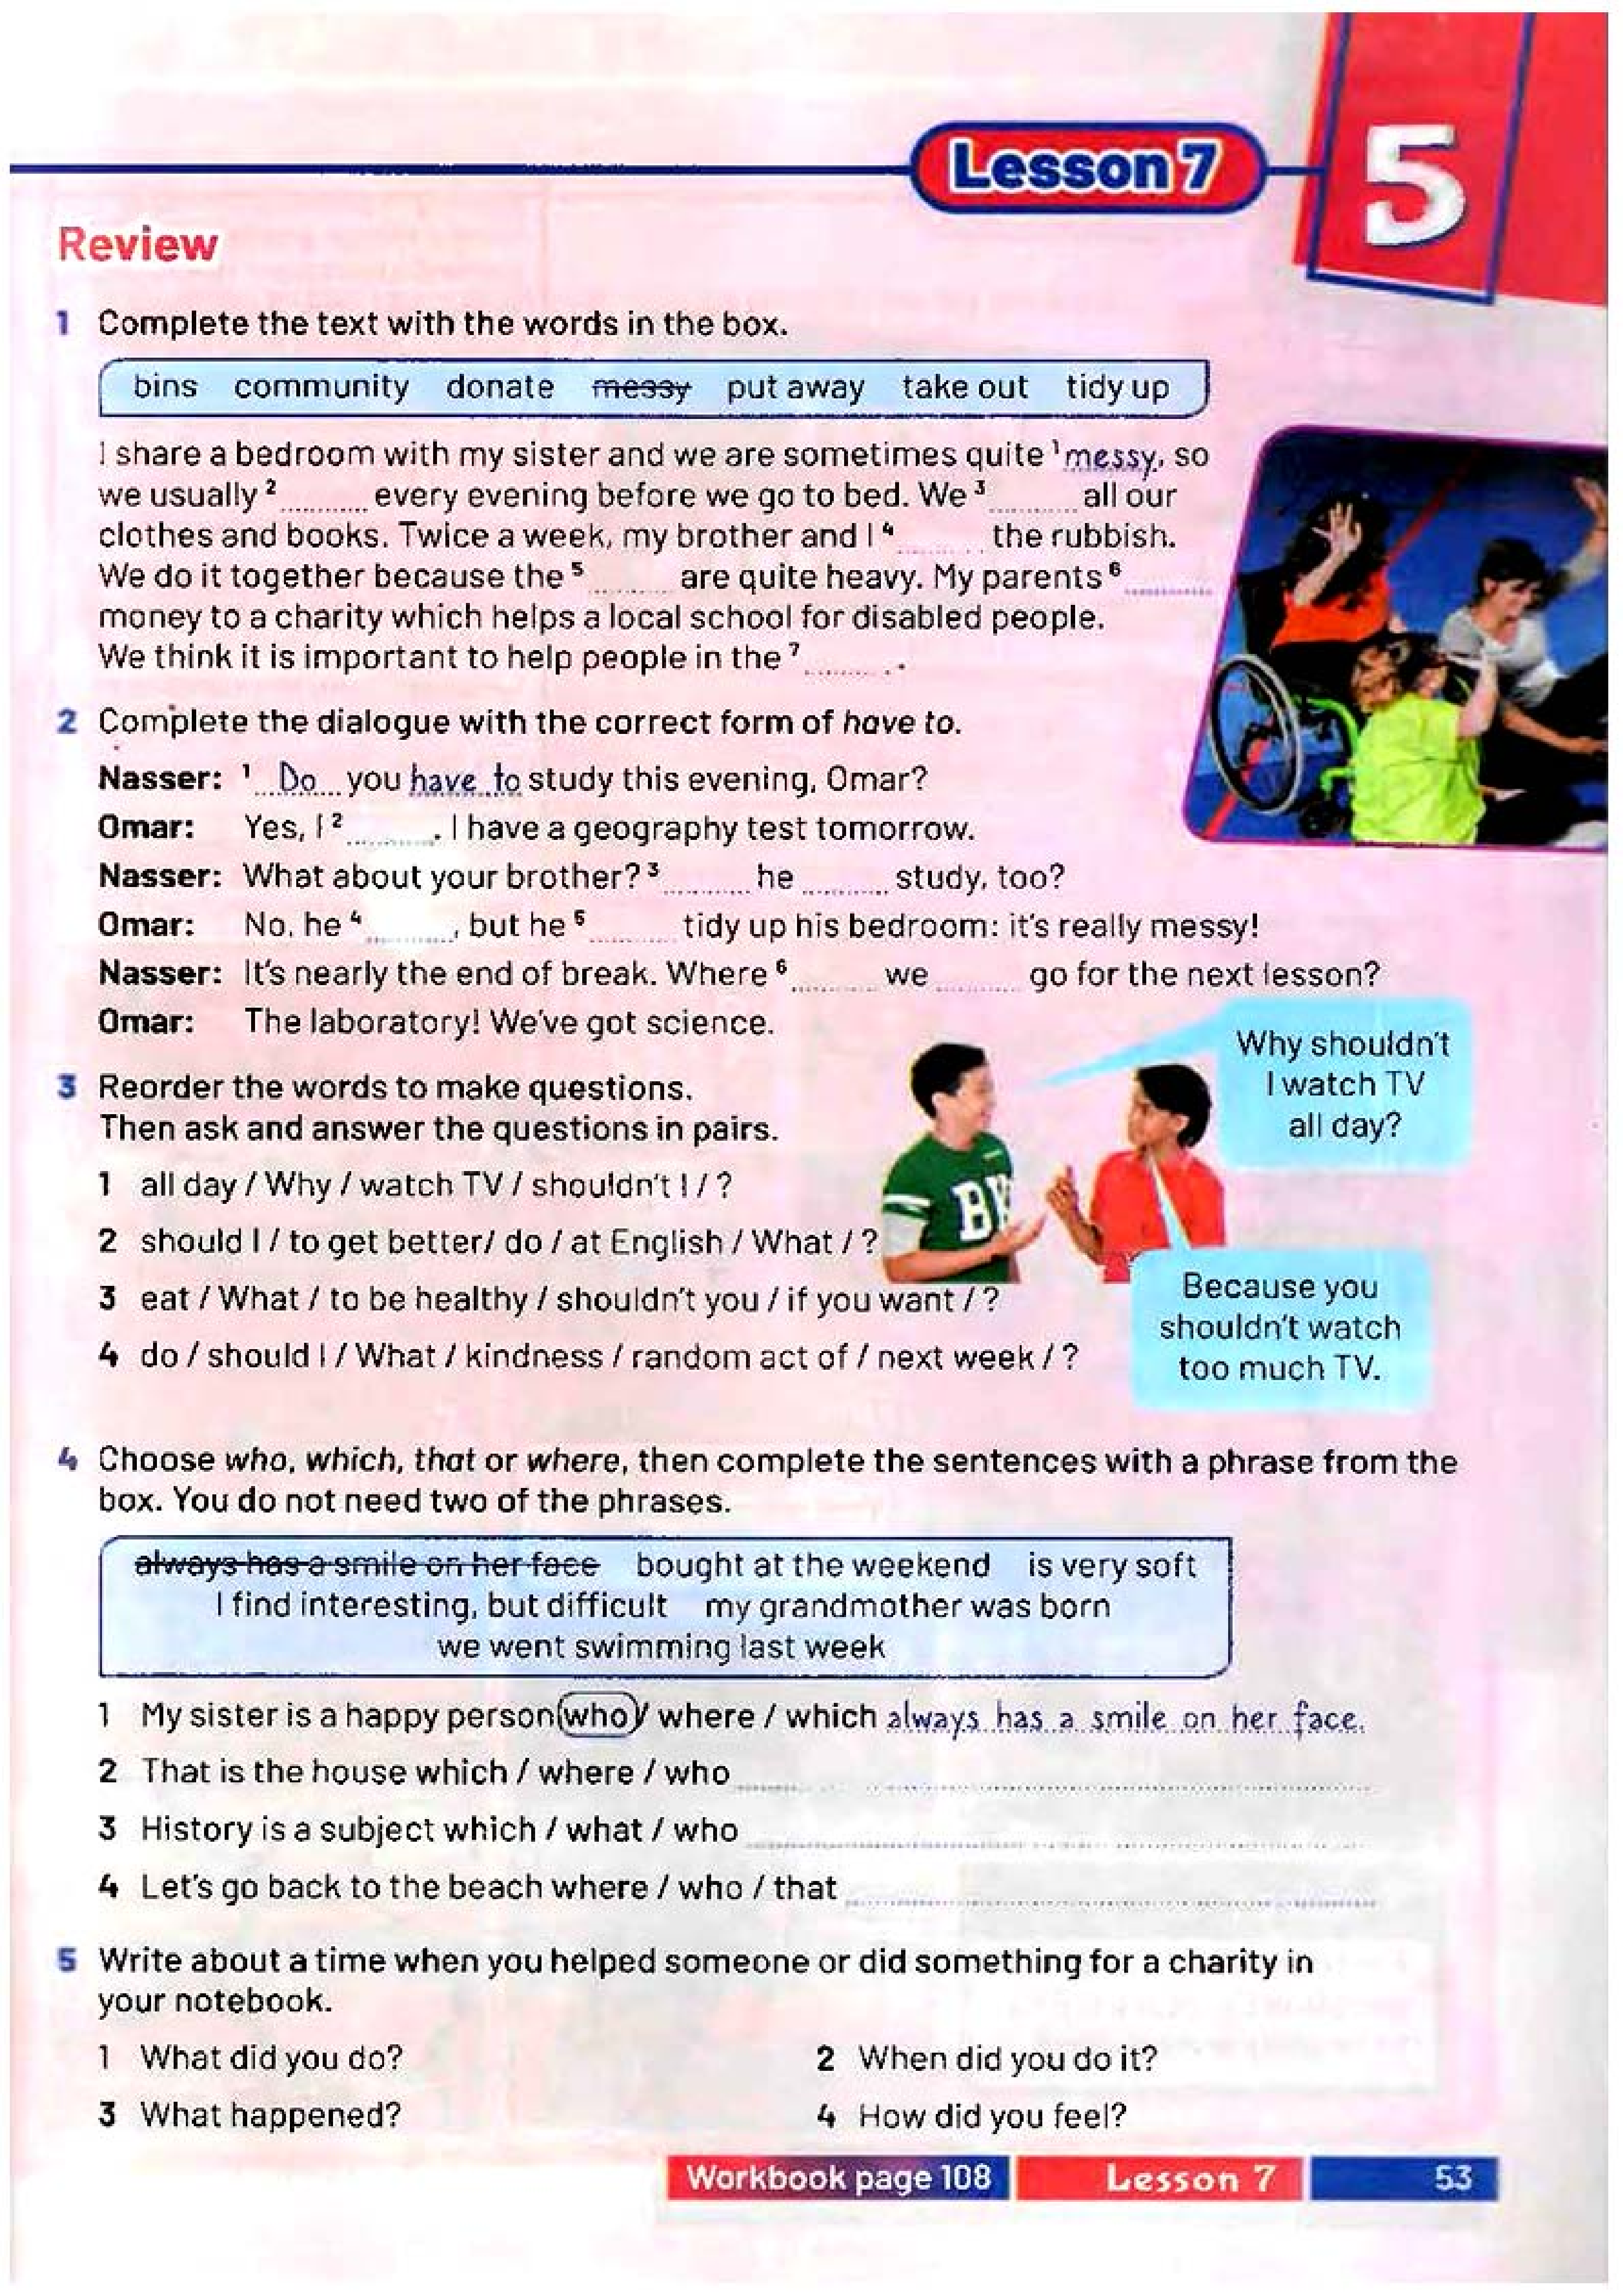 Lesson 7
5
Review
1 Complete the text with the words in the box.
bins community donate messy put away take out tidy up
I share a bedroom with my sister and we are sometimes quite ¹ messy, so
we usually ² ........... every evening before we go to bed. We ³ .......... all our
clothes and books. Twice a week, my brother and I ⁴ .......... the rubbish.
We do it together because the ⁵ .......... are quite heavy. My parents ⁶ ..........
money to a charity which helps a local school for disabled people.
We think it is important to help people in the ⁷ .......... .
2 Complete the dialogue with the correct form of have to.
Nasser: ¹ Do you have to study this evening, Omar?
Omar: Yes, I ² .......... . I have a geography test tomorrow.
Nasser: What about your brother? ³ .......... he .......... study, too?
Omar: No, he ⁴ .........., but he ⁵ .......... tidy up his bedroom: it's really messy!
Nasser: It's nearly the end of break. Where ⁶ .......... we .......... go for the next lesson?
Omar: The laboratory! We've got science.
3 Reorder the words to make questions.
Then ask and answer the questions in pairs.
1 all day / Why / watch TV / shouldn't I / ?
2 should I / to get better/ do / at English / What / ?
3 eat / What / to be healthy / shouldn't you / if you want / ?
4 do / should I / What / kindness / random act of / next week / ?
Why shouldn't
I watch TV
all day?
BK
Because you
shouldn't watch
too much TV.
4 Choose who, which, that or where, then complete the sentences with a phrase from the
box. You do not need two of the phrases.
always has a smile on her face bought at the weekend is very soft
I find interesting, but difficult my grandmother was born
we went swimming last week
1 My sister is a happy person who / where / which always has a smile on her face.
2 That is the house which / where / who
3 History is a subject which / what / who
4 Let's go back to the beach where / who / that
5 Write about a time when you helped someone or did something for a charity in
your notebook.
1 What did you do?
2 When did you do it?
3 What happened?
4 How did you feel?
Workbook page 108 Lesson 7 53